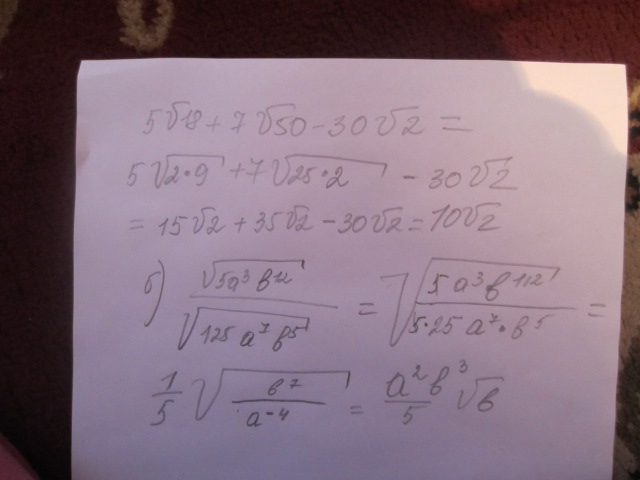 5√18 + 7√50 - 30√2 =
5√2·9 + 7√25·2 - 30√2
= 15√2 + 35√2 - 30√2 = 10√2
б) √5a³b¹² / √125a⁷b⁵ = √5a³b¹¹² / 5·25a⁷·b⁵ =
1/5 √b⁷ / a⁻⁴ = a²b³/5 √b